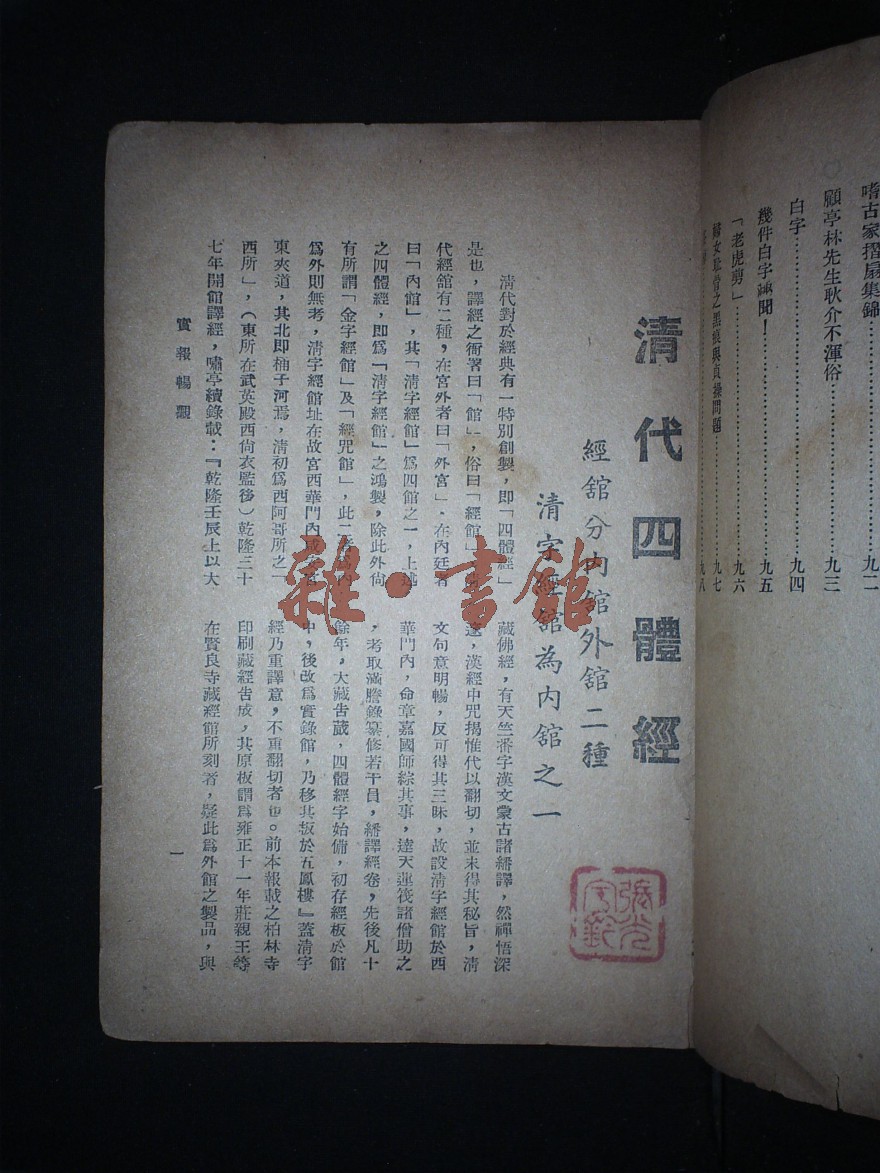 嗜古家摺扇集錦…………九二
顧亭林先生耿介不渾俗…………九三
白字…………九四
幾件白字趣聞!…………九五
「老虎剪」…………九六
之黑痕與貞操問題…………九七
九八
清代四體經
經舘分內舘外舘二種
清字經舘為內舘之一
清代對於經典有一特別創製,即「四體經」
是也,譯經之衙署曰「館」,俗曰「經館」,
代經舘有二種,在宮外者曰「外宮」,在內廷者
曰「內館」,其「清字經館」爲四館之一,上述
之四體經,即爲「清字經館」之鴻製,除此外尙
有所謂「金字經館」及「經咒館」,此二
爲外則無考,清字經館址在故宮西華門內咸
東夾道,其北即桶子河焉,清初爲西阿哥所之一
西所」,(東所在武英殿西尙衣監後)乾隆三十
七年開館譯經,嘯亭續錄載:『乾隆壬辰上以大
藏佛經,有天竺番字漢文蒙古諸繙譯,然禪悟深
邃,漢經中咒揭惟代以翻切,並未得其秘旨,清
文句意明暢,反可得其三昧,故設清字經館於西
華門內,命章嘉國師綜其事,達天蓮筏諸僧助之
,考取滿謄錄纂修若干員,繙譯經卷,先後凡十
餘年,大藏告蕆,四體經字始備,初存經板於館
中,後改爲實錄館,乃移其板於五鳳樓』蓋清字
經乃重譯意,不重翻切者也。前本報載之柏林寺
印刷藏經告成,其原板謂爲雍正十一年莊親王等
在賢良寺藏經館所刻者,疑此爲外館之製品,與
實報暢觀
一
雜·書館